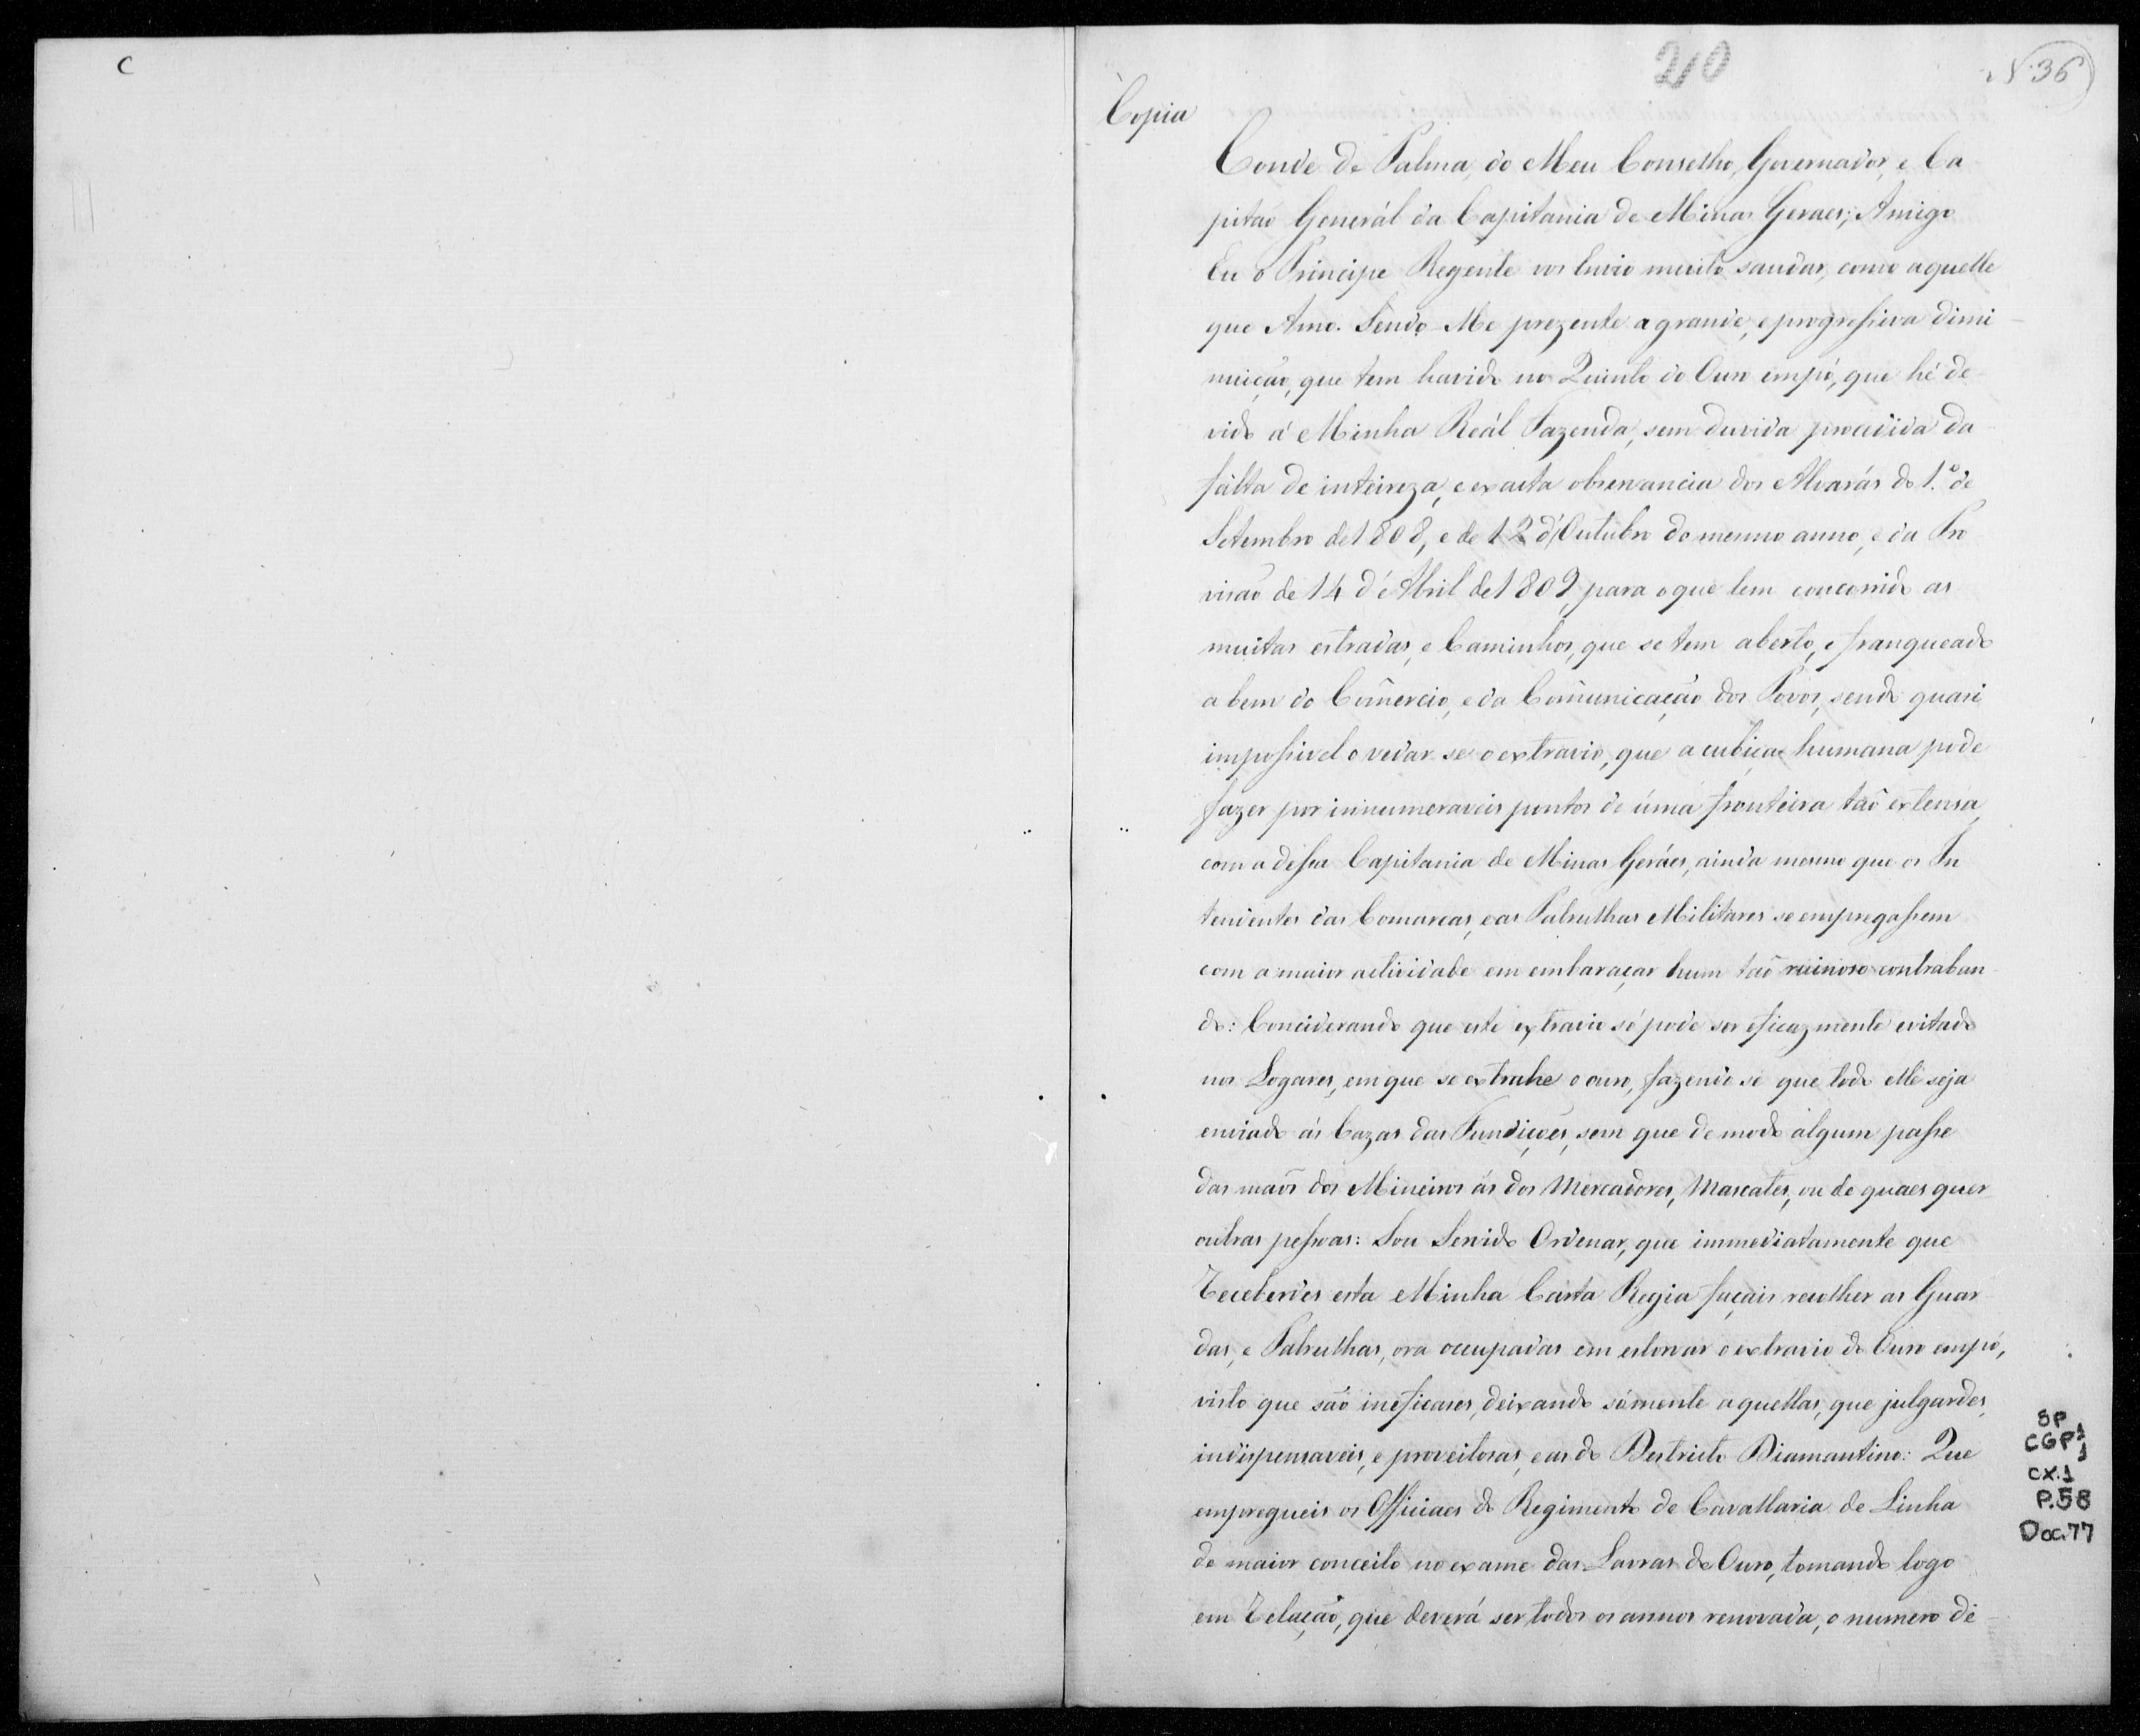 C
210
N. 36
Copia
Conde de Palma, do Meu Conselho, Governador, e Ca
pitaõ Generál da Capitania de Minas Geraes; Amigo
Eu o Principe Regente vos Envio muito saudar, como aquelle
que Amo. Sendo-Me prezente a grande, e progressiva dimi-
nuição, que tem havido no Quinto do Ouro empó, que hé de-
vido á Minha Reál Fazenda, sem duvida procedida da
fálta de inteireza, e exacta observancia dos Alvarás do 1.º de
Setembro de 1808, e de 12 d'Outubro do mesmo anno, e da Pro
visaõ de 14 d'Abril de 1809, para o que tem concorrido as
muitas estradas, e Caminhos, que se tem aberto, e franqueado
a bem do Comercio, e da Comunicação dos Povos, sendo quasi
impossivel o vedar-se o extravio, que a cubiça humana pode
fazer por innumeraveis pontos de úma fronteira taõ extensa,
com a dessa Capitania de Minas Geráes, ainda mesmo que os In
tendentes das Comarcas, e as Patrulhas Militares se empregassem
com a maior actividade em embaraçar hum taõ ruinoso contraban
do: Conciderando que este extravio só pode ser eficazmente evitado
nos Logares, em que se extrahe o ouro, fazendo se que todo elle seja
enviado ás Cazas das Fundições, sem que de modo algum passe
das maõs dos Mineiros ás dos Mercadores, Mascates, ou de quaes quer
outras pessoas: Sou Servido Ordenar, que immediatamente que
receberdes esta Minha Carta Regia façais recolher as Guar
das, e Patrulhas, ora occupadas em estorvar o extravio do Ouro empó,
visto que são ineficases, deixando sómente aquellas, que julgardes
indispensaveis, e proveitosas, e as do Destricto Diamantino: Que
empregueis os Officiaes do Regimento de Cavallaria de Linha
de maior conceito no exame das Lavras do Ouro, tomando logo
em relação, que deverá ser todos os annos renovada, o numero de
SP
CGP1
1
CX.1
P.58
Doc.77